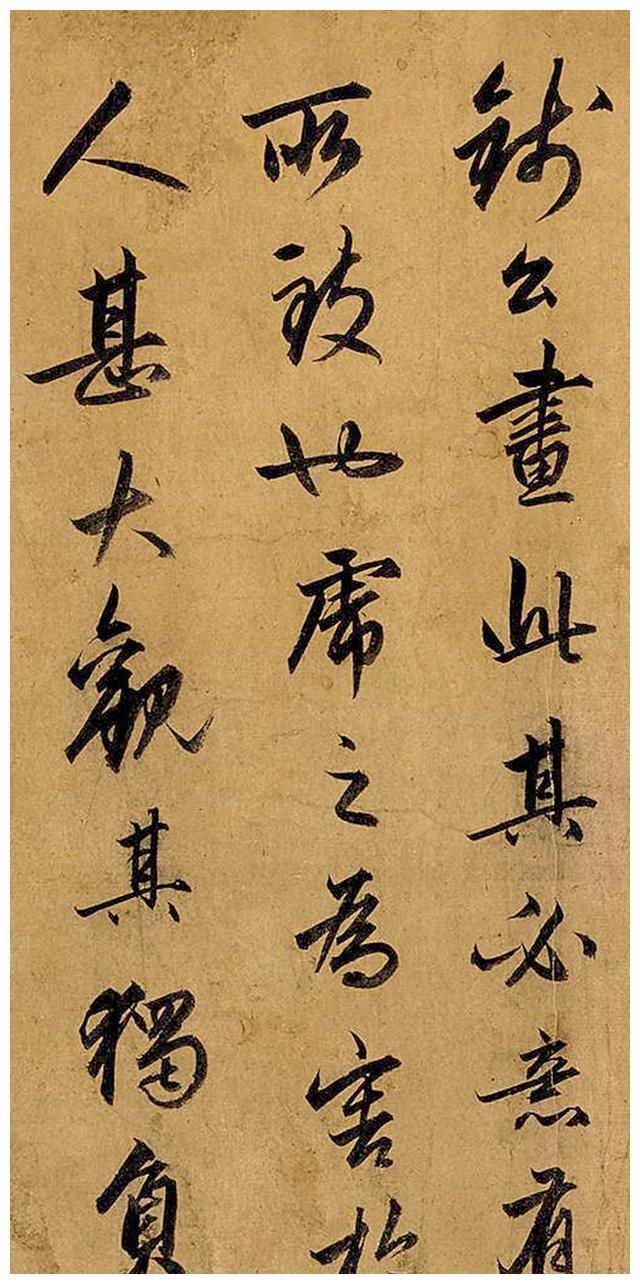 錢公畫此其必意有
所致也虎之為害於
人甚大觀其獨負